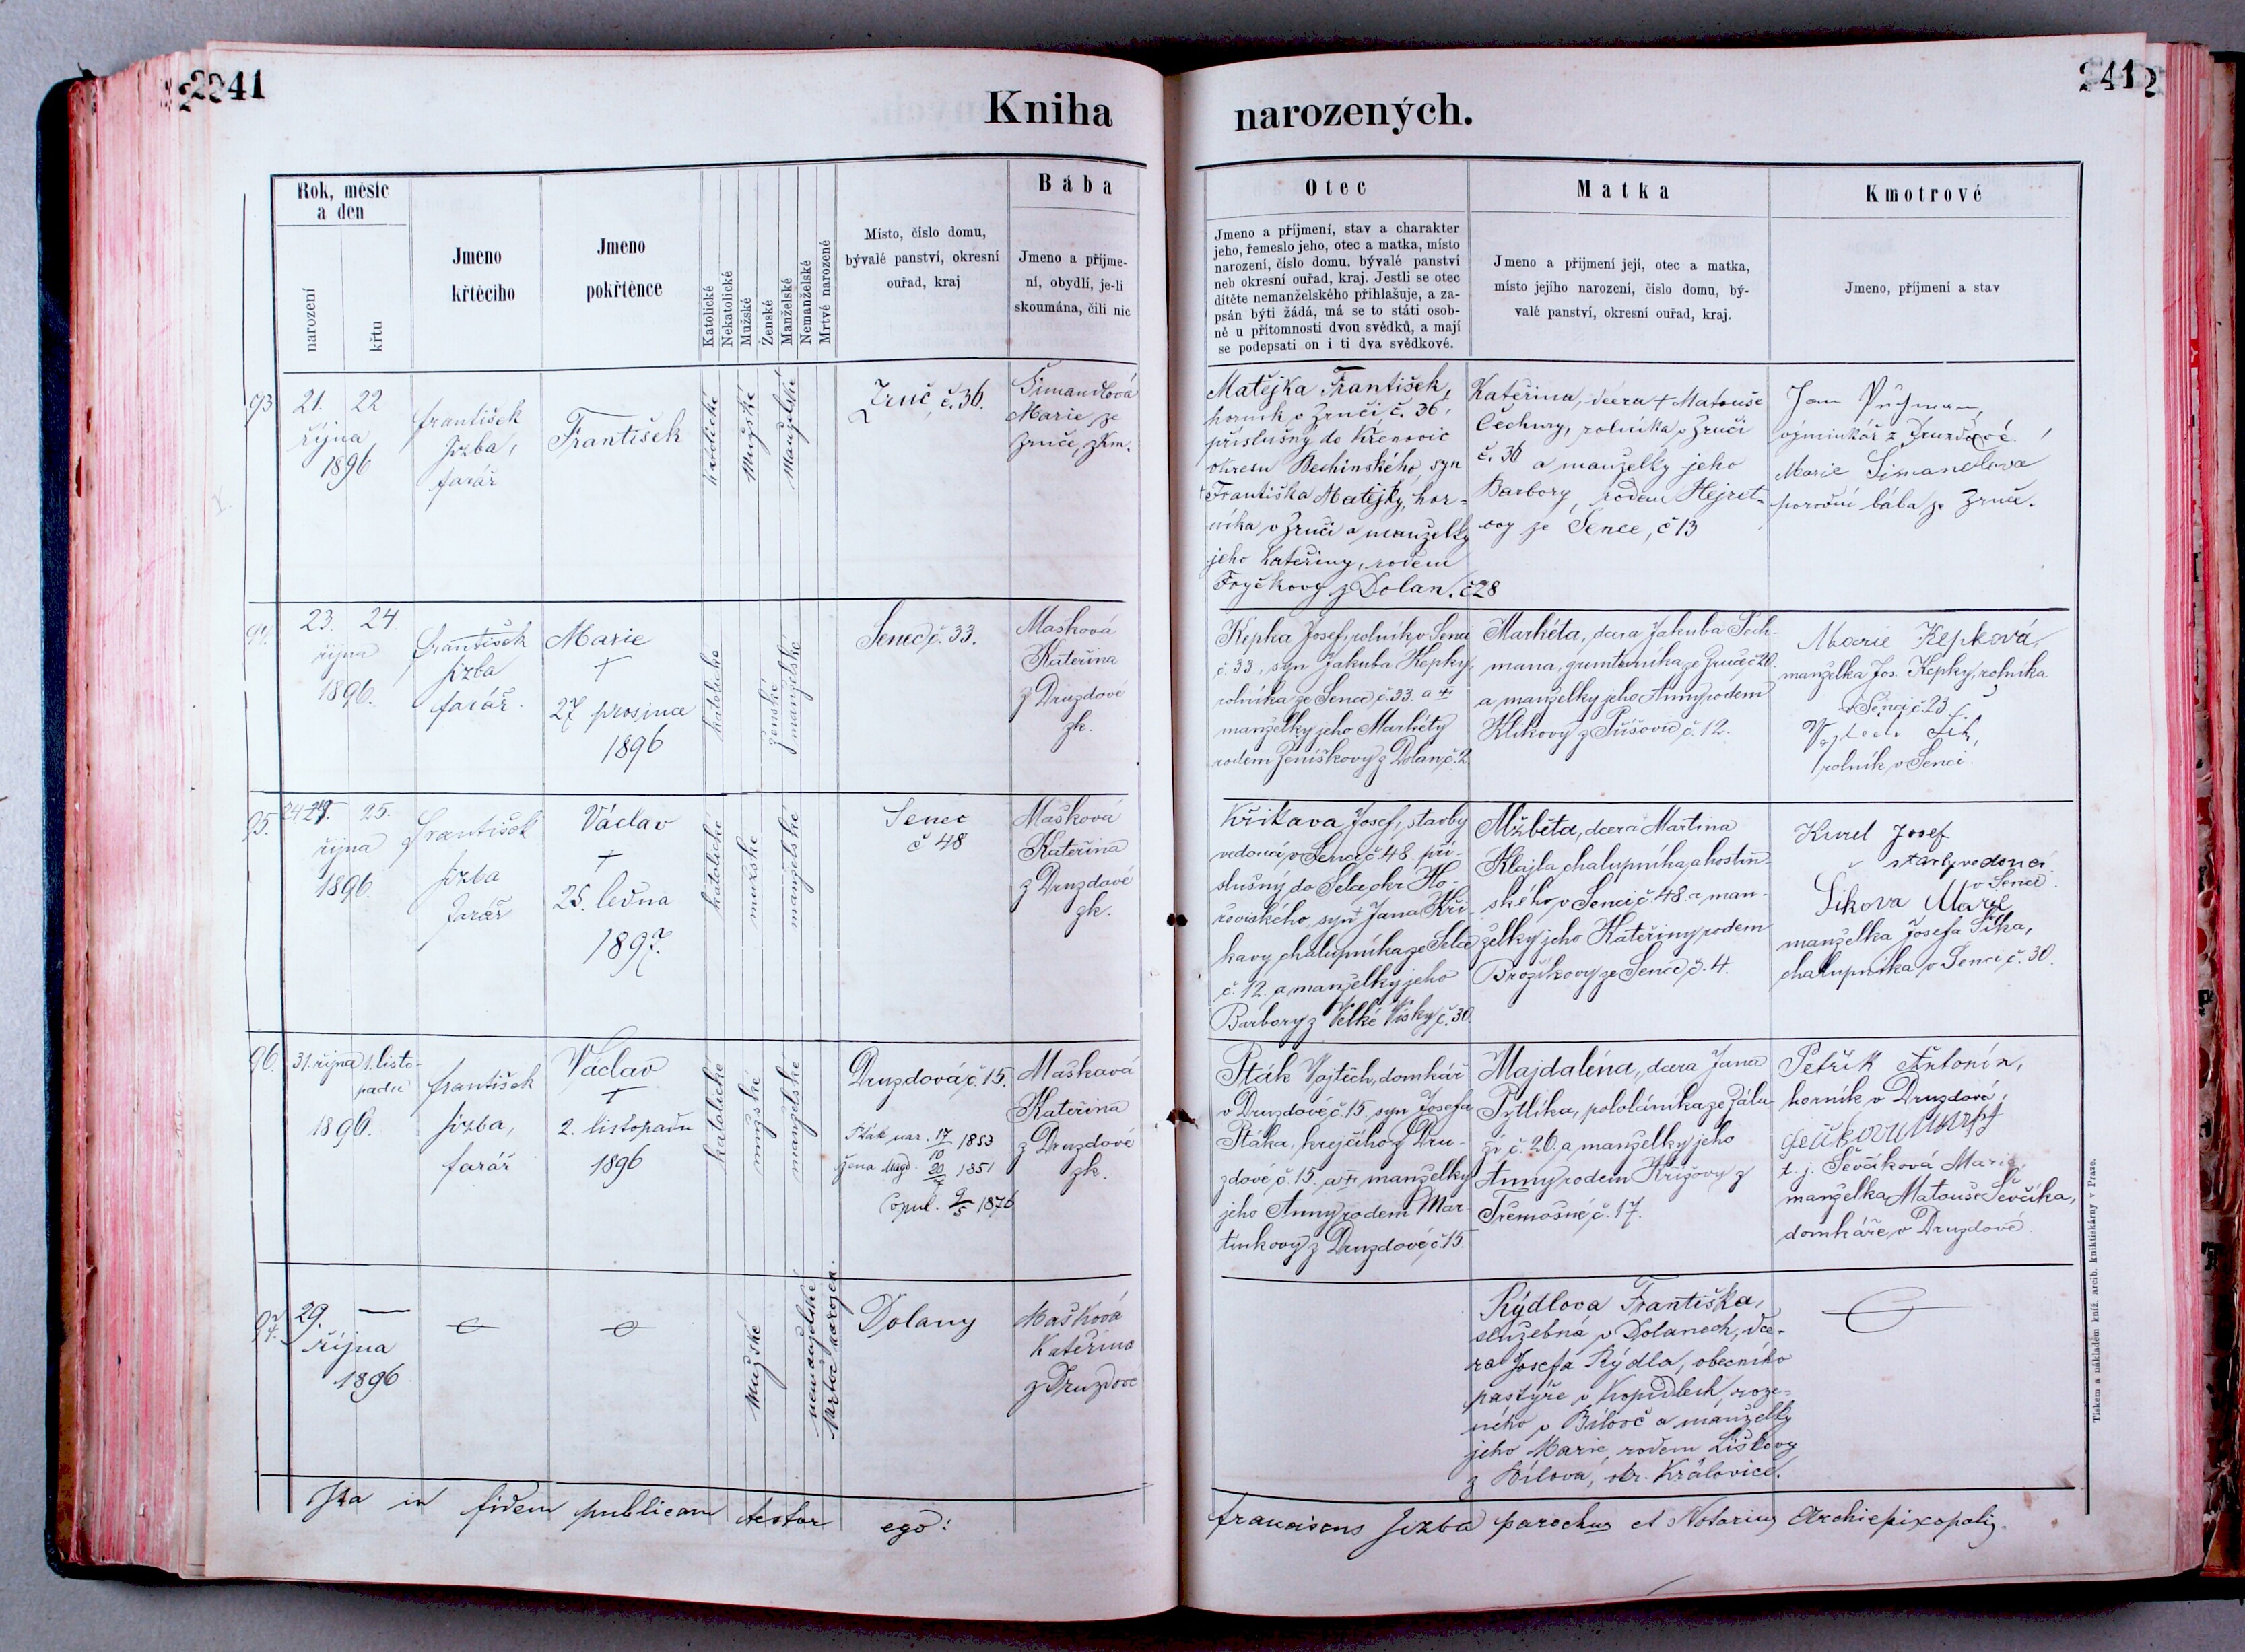 241
Kniha
narozených.
241
Rok, měsíc
a den
narození
křtu
Jmeno
křtěcího
Jmeno
pokřtěnce
Katolické
Nekatolické
Mužské
Ženské
Manželské
Nemanželské
Mrtvé narozené
Místo, číslo domu,
bývalé panství, okresní
ouřad, kraj
Bába
Jmeno a příjme-
ní, obydlí, je-li
skoumána, čili nic
Otec
Jmeno a příjmení, stav a charakter
jeho, řemeslo jeho, otec a matka, místo
narození, číslo domu, bývalé panství
neb okresní ouřad, kraj. Jestli se otec
dítěte nemanželského přihlašuje, a za-
psán býti žádá, má se to státi osob-
ně u přítomnosti dvou svědků, a mají
se podepsati on i ti dva svědkové.
Matka
Jmeno a příjmení její, otec a matka,
místo jejího narození, číslo domu, bý-
valé panství, okresní ouřad, kraj.
Kmotrové
Jmeno, příjmení a stav
93
21. 22
října
1896
František
Jizba,
farář
František
katolické
Mužské
Manželské
Zruč, č. 36.
Šimandlová
Marie ze
Zruče, zkm.
Matějka František,
horník v Zruči č. 36,
příslušný do Křenovic
okresu Bechinského, syn
† Františka Matějky, hor-
níka v Zruči a manželky
jeho Kateřiny, rodem
Fryčkovy z Dolan. č 28
Kateřina, dcera † Matouše
Čechury, rolníka v Zruči
č. 36 a manželky jeho
Barbory, rodem Hejret-
ovy ze Sence, č 13
Jan
výminkář z Druzdové.
Marie Šimandlova
porodní bába ze Zruče.
94.
23. 24.
října
1896.
František
Jizba
farář.
Marie
†
27 prosince
1896
katolické
ženské
manželské
Senec č. 33.
Mašková
Kateřina
z Druzdové
zk.
Kepka Josef, rolník v Senci
č. 33, syn Jakuba Kepky,
rolníka ze Sence č. 33. a †
manželky jeho Markéty
rodem Jeníškovy z Dolan, č. 2
Markéta, dcera Jakuba Sech-
mana, gruntovníka ze Zruče č 20.
a manželky jeho Anny rodem
Klikovy z Příšovic č. 12.
Marie Kepková,
manželka Jos. Kepky, rolníka
v Senci č. 23.
Vojtěch Šik,
rolník v Senci.
95.
24 25.
října
1896.
František
Jizba
farář
Václav
†
25. ledna
1897.
katolické
mužské
manželské
Senec
č 48
Mašková
Kateřina
z Druzdové
zk.
Křikava Josef, stavby
vedoucí v Senci č 48. pří-
slušný do Selce okr. Ho-
řovického, syn † Jana Kři-
kavy chalupníka ze Selce
č. 12. a manželky jeho
Barbory z Velké Vísky č. 30
Alžběta, dcera Martina
Klajla chalupníka a hostin-
ského v Senci č. 48. a man-
želky jeho Kateřiny rodem
Brožíkovy ze Sence č. 4.
Kurel Josef
stavbyvedoucí
v Senci.
Šikova Marie
manželka Josefa Šika,
chalupníka v Senci č. 30.
96.
31. října 1. listo-
padu
1896.
František
Jizba,
farář
Václav
†
2. listopadu
1896
katolické
mužské
manželské
Druzdová č. 15.
Pták nar. 17/10 1853
žena Magd. 20/7 1851
Copul. 9/5 1876
Mašková
Kateřina
z Druzdové
zk.
Pták Vojtěch, domkář
v Druzdové č. 15. syn Josefa
Ptáka, krejčího z Dru-
zdové č. 15. a † manželky
jeho Anny rodem Mar-
tínkovy z Druzdové č. 15.
Majdaléna, dcera Jana
Pytlíka, pololáníka ze Zálu-
ží č. 26. a manželky jeho
Anny rodem Křížovy z
Třemošné, č. 17.
Petřík Antonín,
horník v Druzdové.
t. j. Ševčíková Marie,
manželka Matouše Ševčíka,
domkáře v Druzdové.
97.
29. —
října
1896
Mužské
nemanželské
Mrtvě narozen.
Dolany
Mašková
Kateřina
z Druzdové
Rýdlova Františka,
služebná v Dolanech, dce-
ra Josefa Rýdla, obecního
pastýře v Kopidlech, roze-
ného v Bílově a manželky
jeho Marie, rodem Liškovy
z Bílova, okr. Královice.
Ita in fidem publicam testor ego:
Franciscus Jizba parochus et Notarius Archiepiscopalis.
Tiskem a nákladem kníž. arcib. knihtiskárny v Praze.